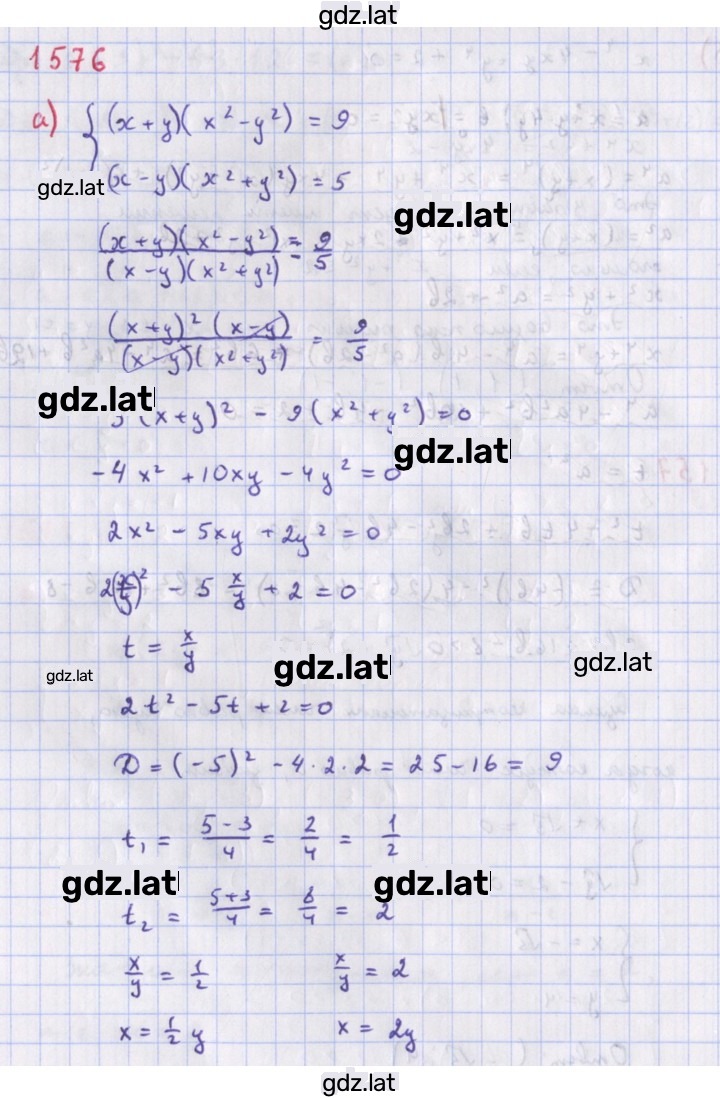 gdz.lat
1576
а) { (x+y)(x² - y²) = 9
gdz.lat (x-y)(x² + y²) = 5
gdz.lat
(x+y)(x² - y²) / (x-y)(x² + y²) = 9/5
(x+y)² (x-y) / (x-y)(x² + y²) = 9/5
gdz.lat
(x+y)² - 9(x² + y²) = 0
gdz.lat
-4x² + 10xy - 4y² = 0
2x² - 5xy + 2y² = 0
2(x/y)² - 5 x/y + 2 = 0
t = x/y
gdz.lat gdz.lat gdz.lat
2t² - 5t + 2 = 0
D = (-5)² - 4·2·2 = 25 - 16 = 9
t₁ = 5-3/4 = 2/4 = 1/2
gdz.lat gdz.lat
t₂ = 5+3/4 = 8/4 = 2
x/y = 1/2 x/y = 2
x = 1/2 y x = 2y
gdz.lat